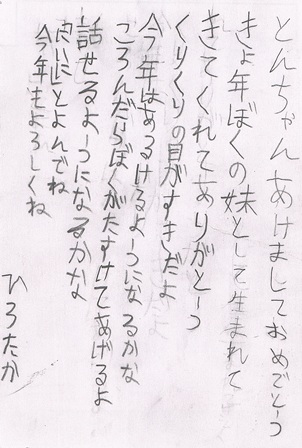 とんちゃんあけましておめでとーう
きょ年ぼくの妹として生まれて
きてくれてありがとーう
くりくりの目がすきだよ
今年はあるけるよーうになるかな
ころんだらぼくがたすけてあげるよ
話せるよーうになるかな
良い にとよんでね
今年もよろしくね
ひろたか